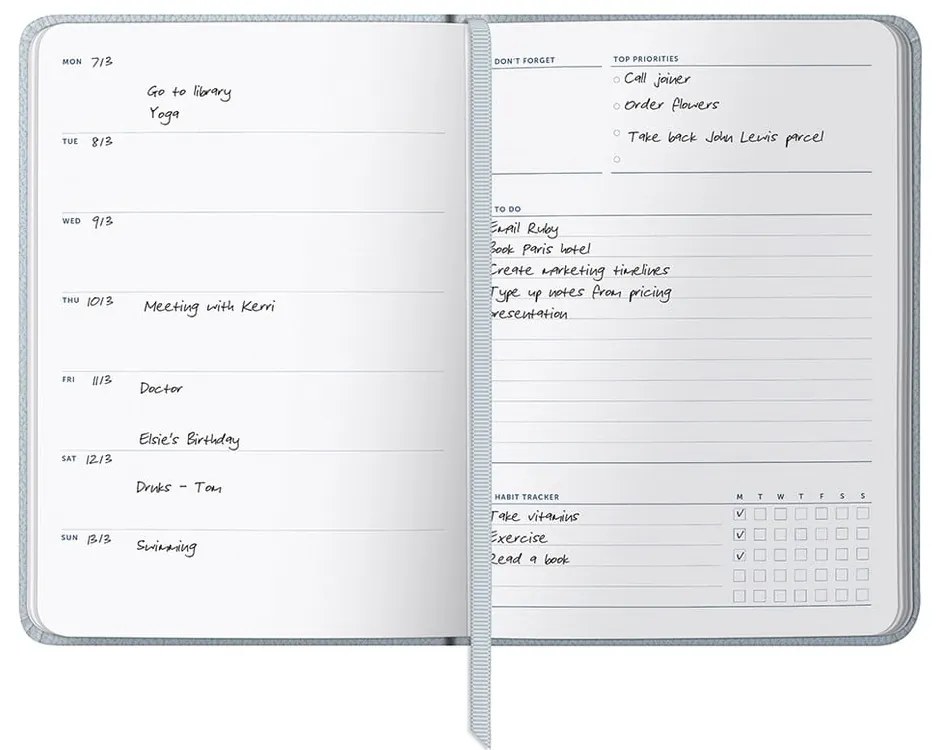 MON 7/3
Go to library
Yoga
TUE 8/3
WED 9/3
THU 10/3 Meeting with Kerri
FRI 11/3 Doctor
Elsie's Birthday
SAT 12/3
Drinks - Tom
SUN 13/3 Swimming
DON'T FORGET
TOP PRIORITIES
Call joiner
Order flowers
Take back John Lewis parcel
TO DO
Email Ruby
Book Paris hotel
Create marketing timelines
Type up notes from pricing
presentation
HABIT TRACKER M T W T F S S
Take vitamins ✓
Exercise ✓
Read a book ✓